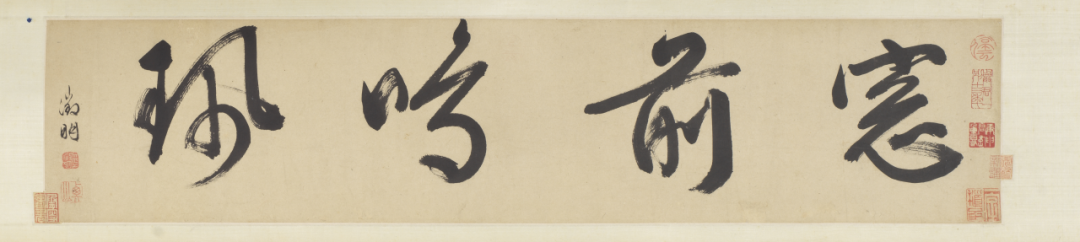 窓前鳴珮
徵明